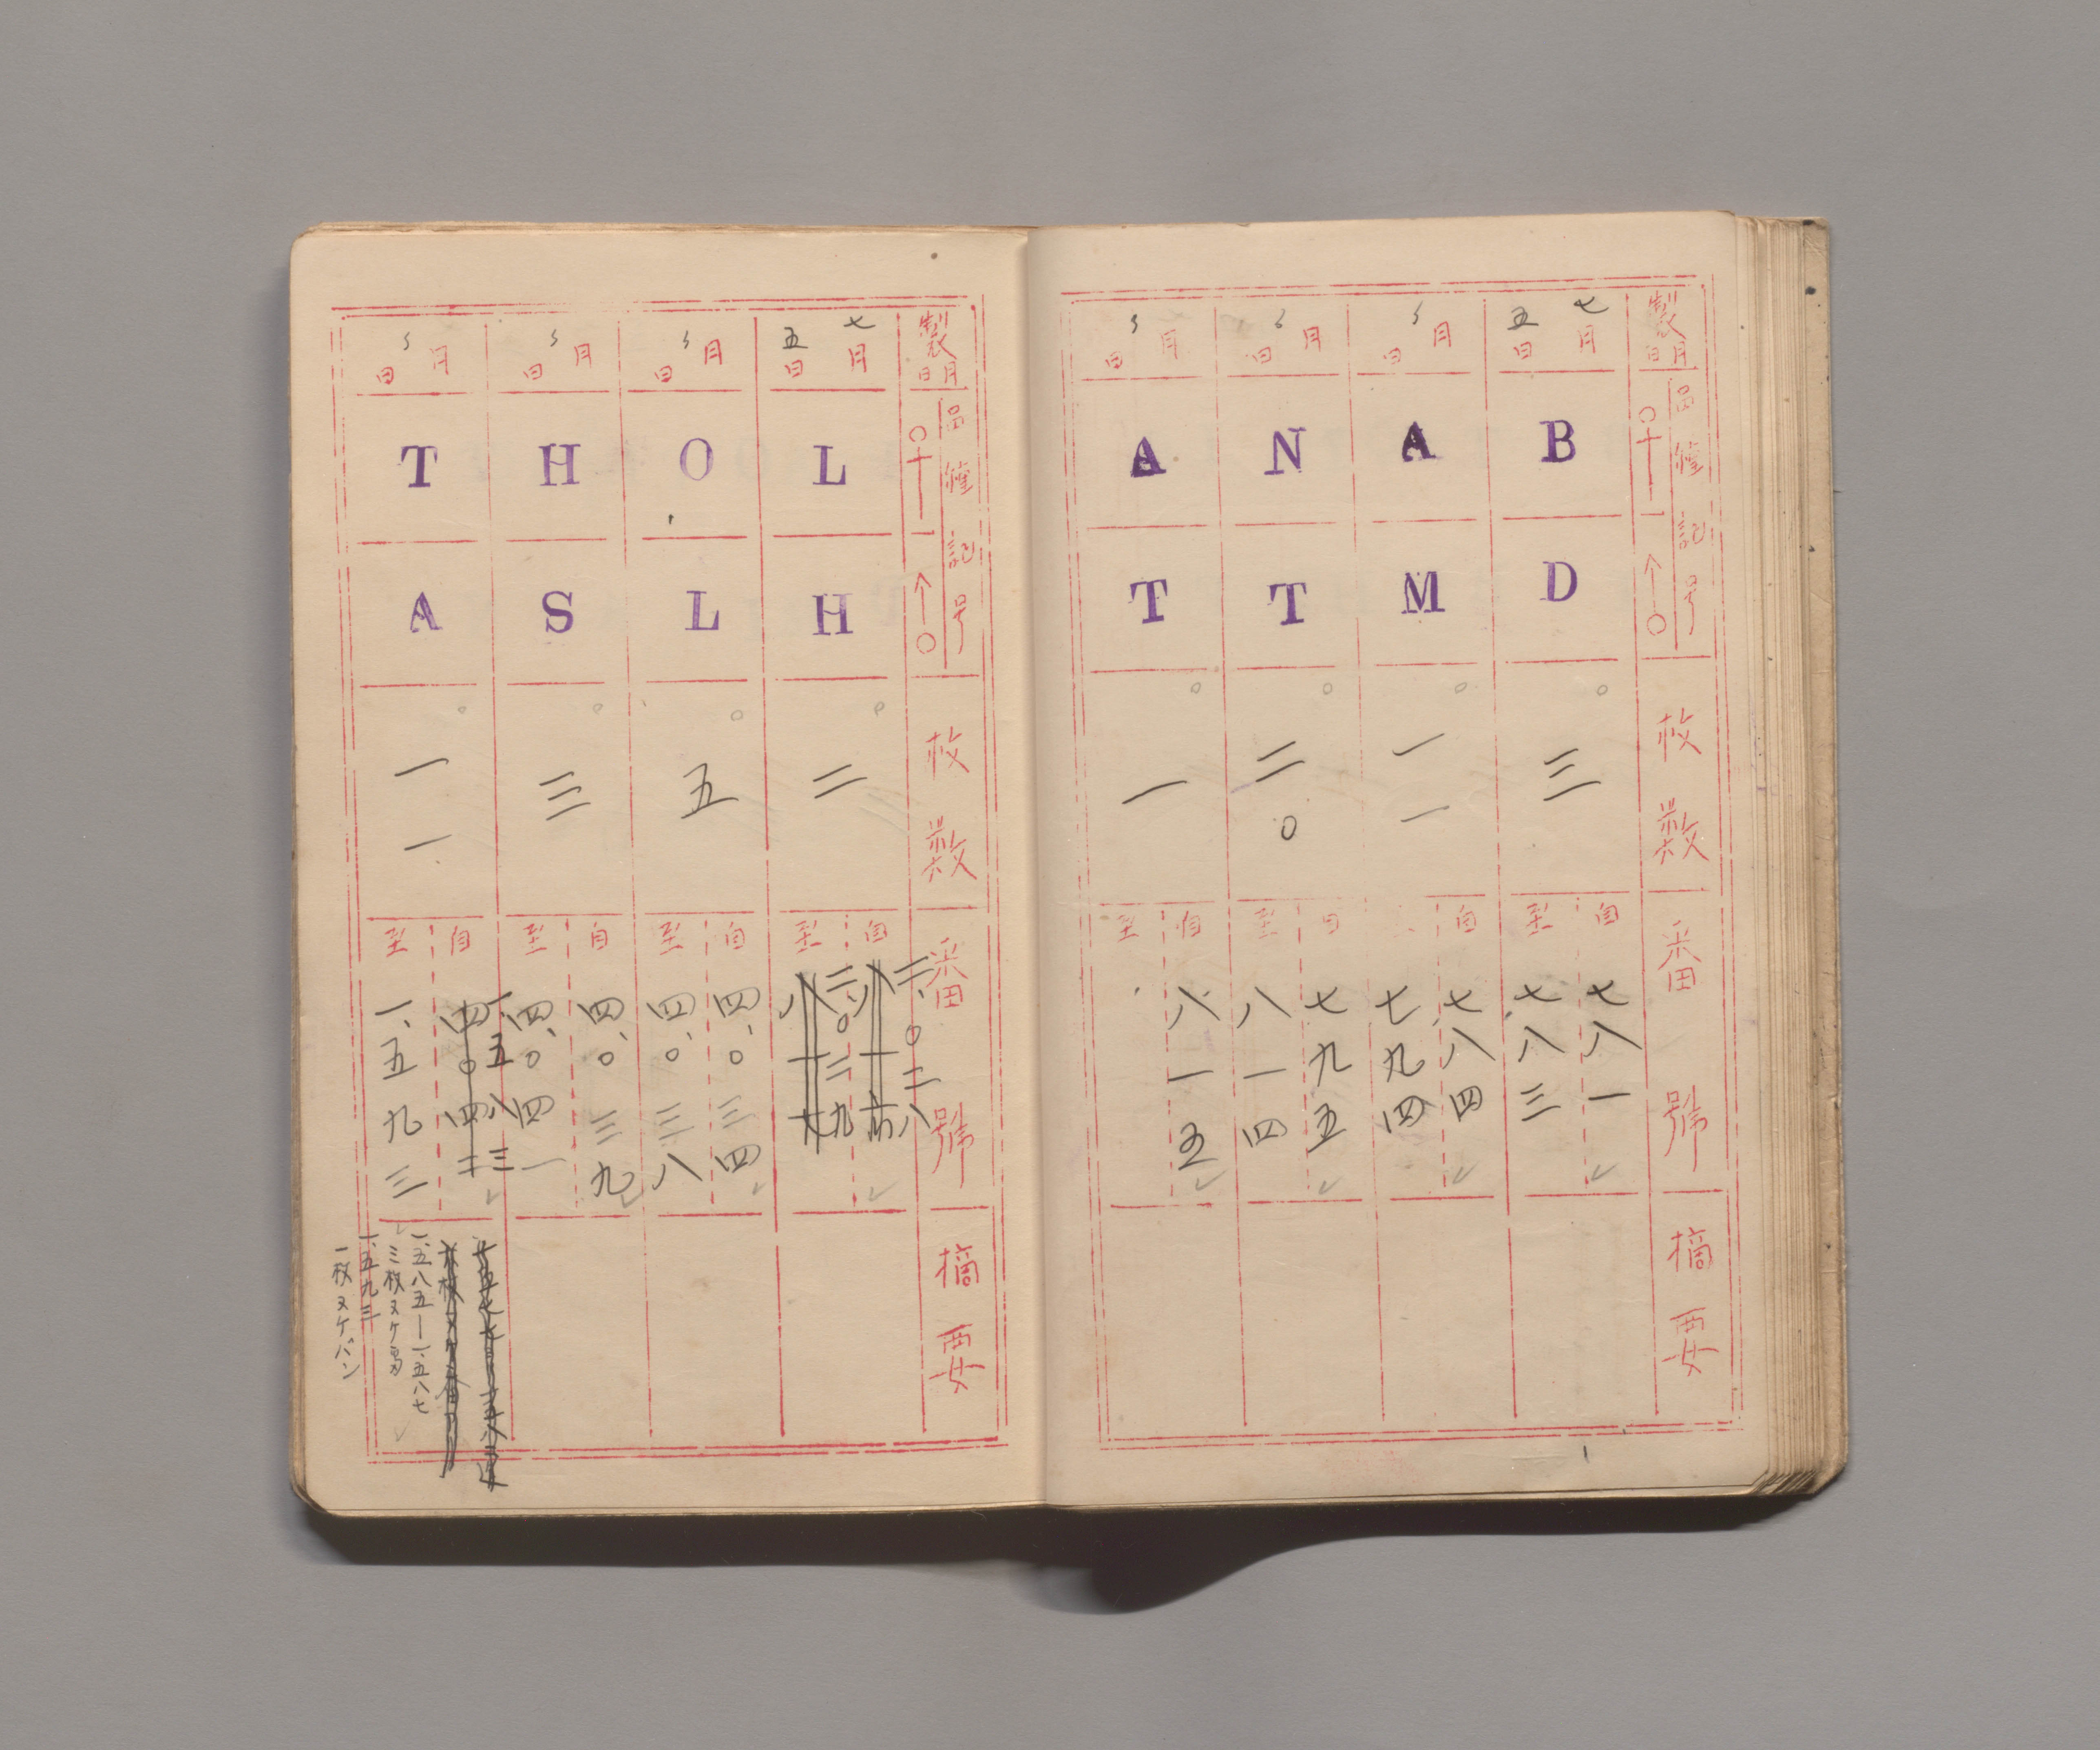 製月日
品種記号
枚数
番號
摘要
七月五日
B
D
三
自 七八一
至 七八三
月日
A
M
一一
自 七八四
至 七九四
月日
N
T
二〇
自 七九五
至 八一四
月日
A
T
一
自 八一五
至
製月日
品種記号
枚数
番號
摘要
七月五日
L
H
二
自 二、〇二八
至 二、〇二九
月日
O
L
五
自 四、〇三四
至 四、〇三八
月日
H
S
三
自 四、〇三九
至 四、〇四一
月日
T
A
一一
自 一、五八三
四〇四二
至 一、五九三
一、五八五—一、五八七
三枚ヌケ
一、五九三
一枚ヌケバン